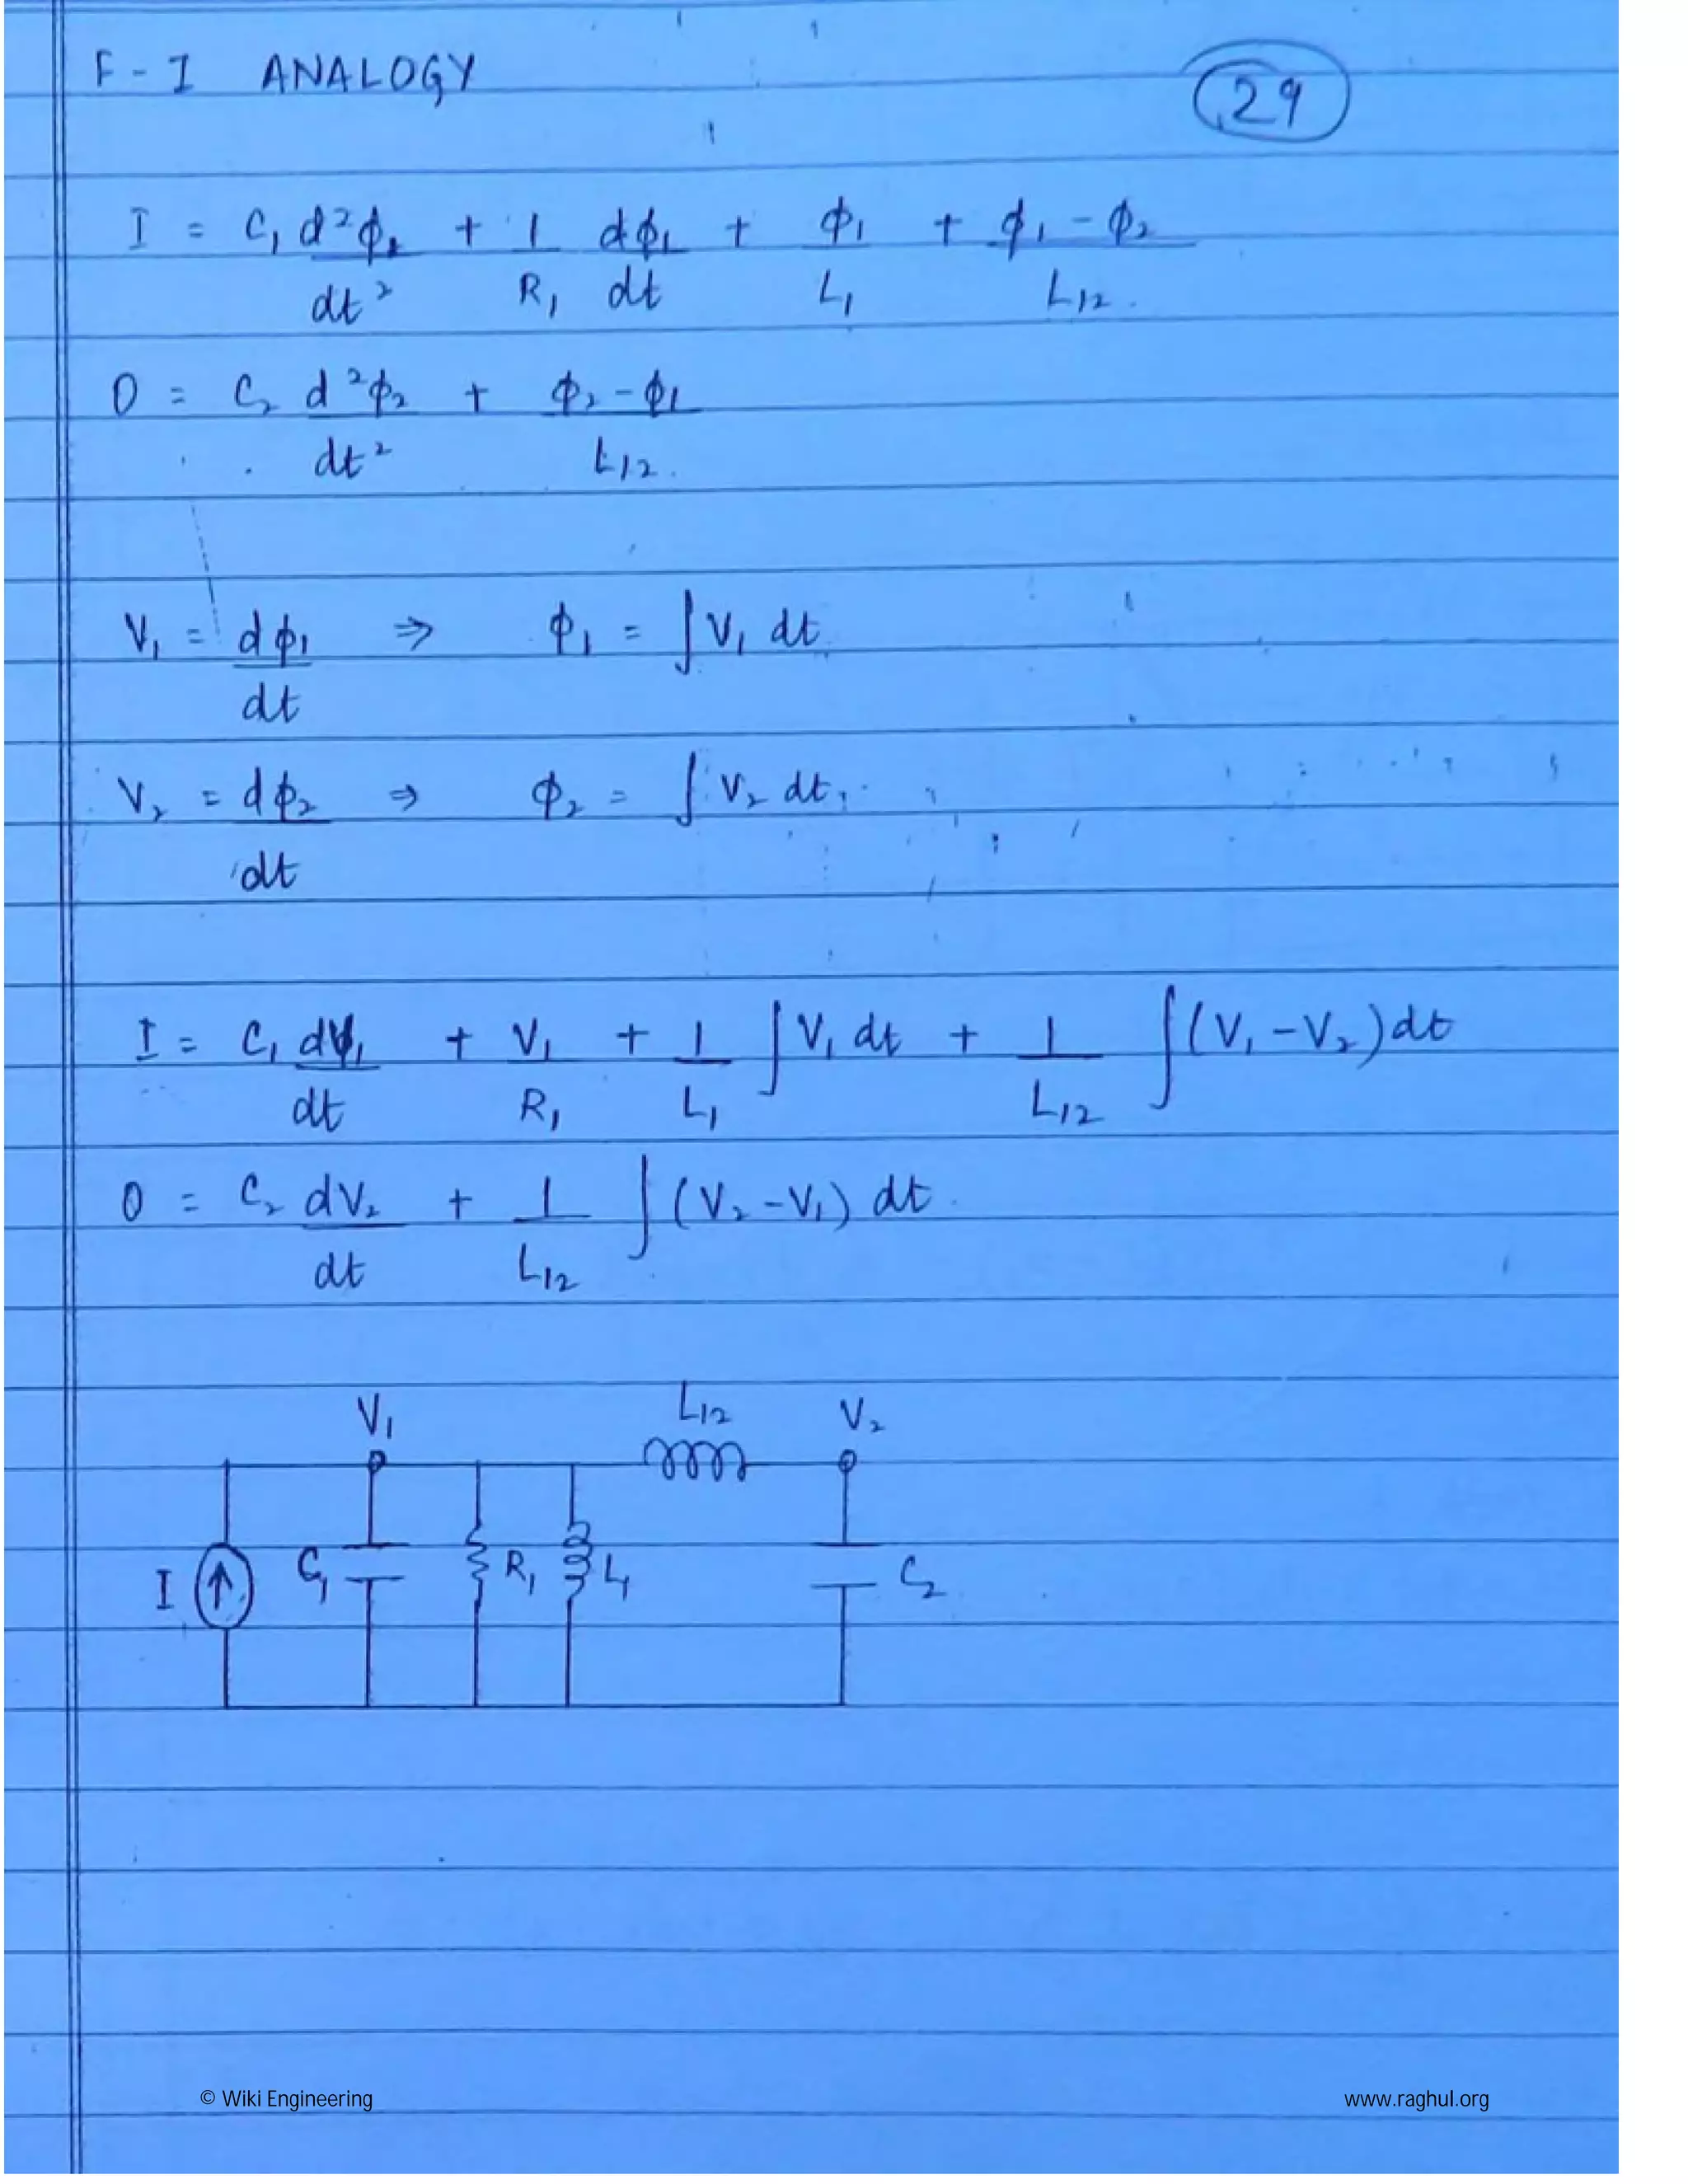 F - I ANALOGY
29
I = C₁ d²φ₁/dt² + 1/R₁ dφ₁/dt + φ₁/L₁ + φ₁ - φ₂/L₁₂.
0 = C₂ d²φ₂/dt² + φ₂ - φ₁/L₁₂.
V₁ = dφ₁/dt ⇒ φ₁ = ∫ V₁ dt
V₂ = dφ₂/dt ⇒ φ₂ = ∫ V₂ dt
I = C₁ dV₁/dt + V₁/R₁ + 1/L₁ ∫ V₁ dt + 1/L₁₂ ∫ (V₁ - V₂) dt
0 = C₂ dV₂/dt + 1/L₁₂ ∫ (V₂ - V₁) dt
V₁ L₁₂ V₂
I C₁ R₁ L₁ C₂
© Wiki Engineering www.raghul.org